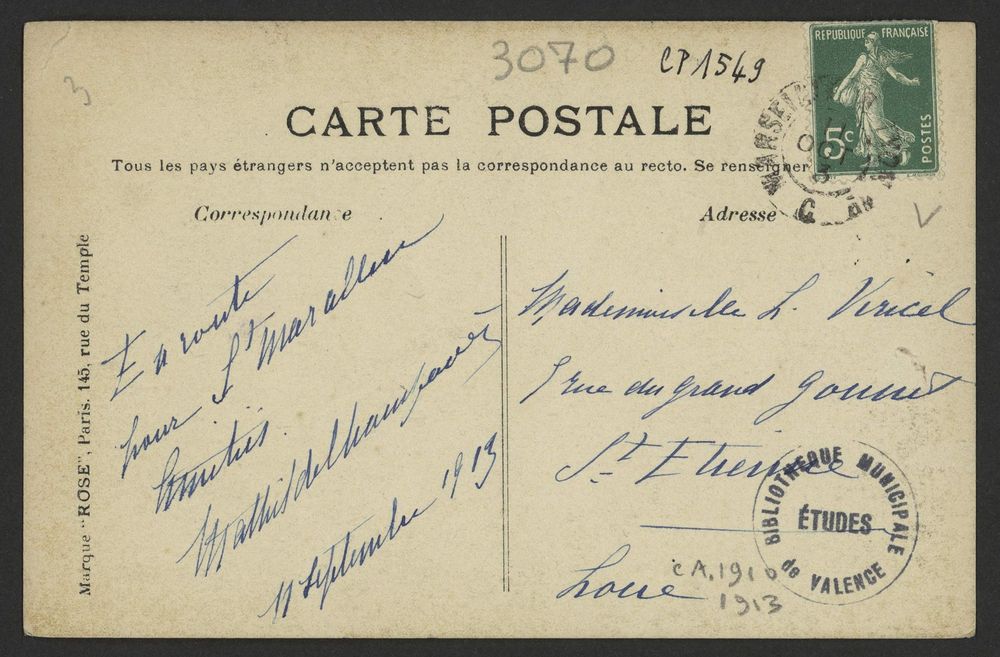 3070
CP1549
3
REPUBLIQUE FRANÇAISE
5c
POSTES
MARSEILLE
11
OCT
CARTE POSTALE
Tous les pays étrangers n'acceptent pas la correspondance au recto. Se renseigner
Correspondance
Adresse
Marque "ROSE", Paris. 145, rue du Temple
En route
pour St Marallen
Amitiés.
11 Septembre 1913
Mademoiselle L. Viricel
rue du grand gonnet
St. Etienne
Loire
BIBLIOTHEQUE MUNICIPALE
ÉTUDES
de VALENCE
CA. 1910
1913